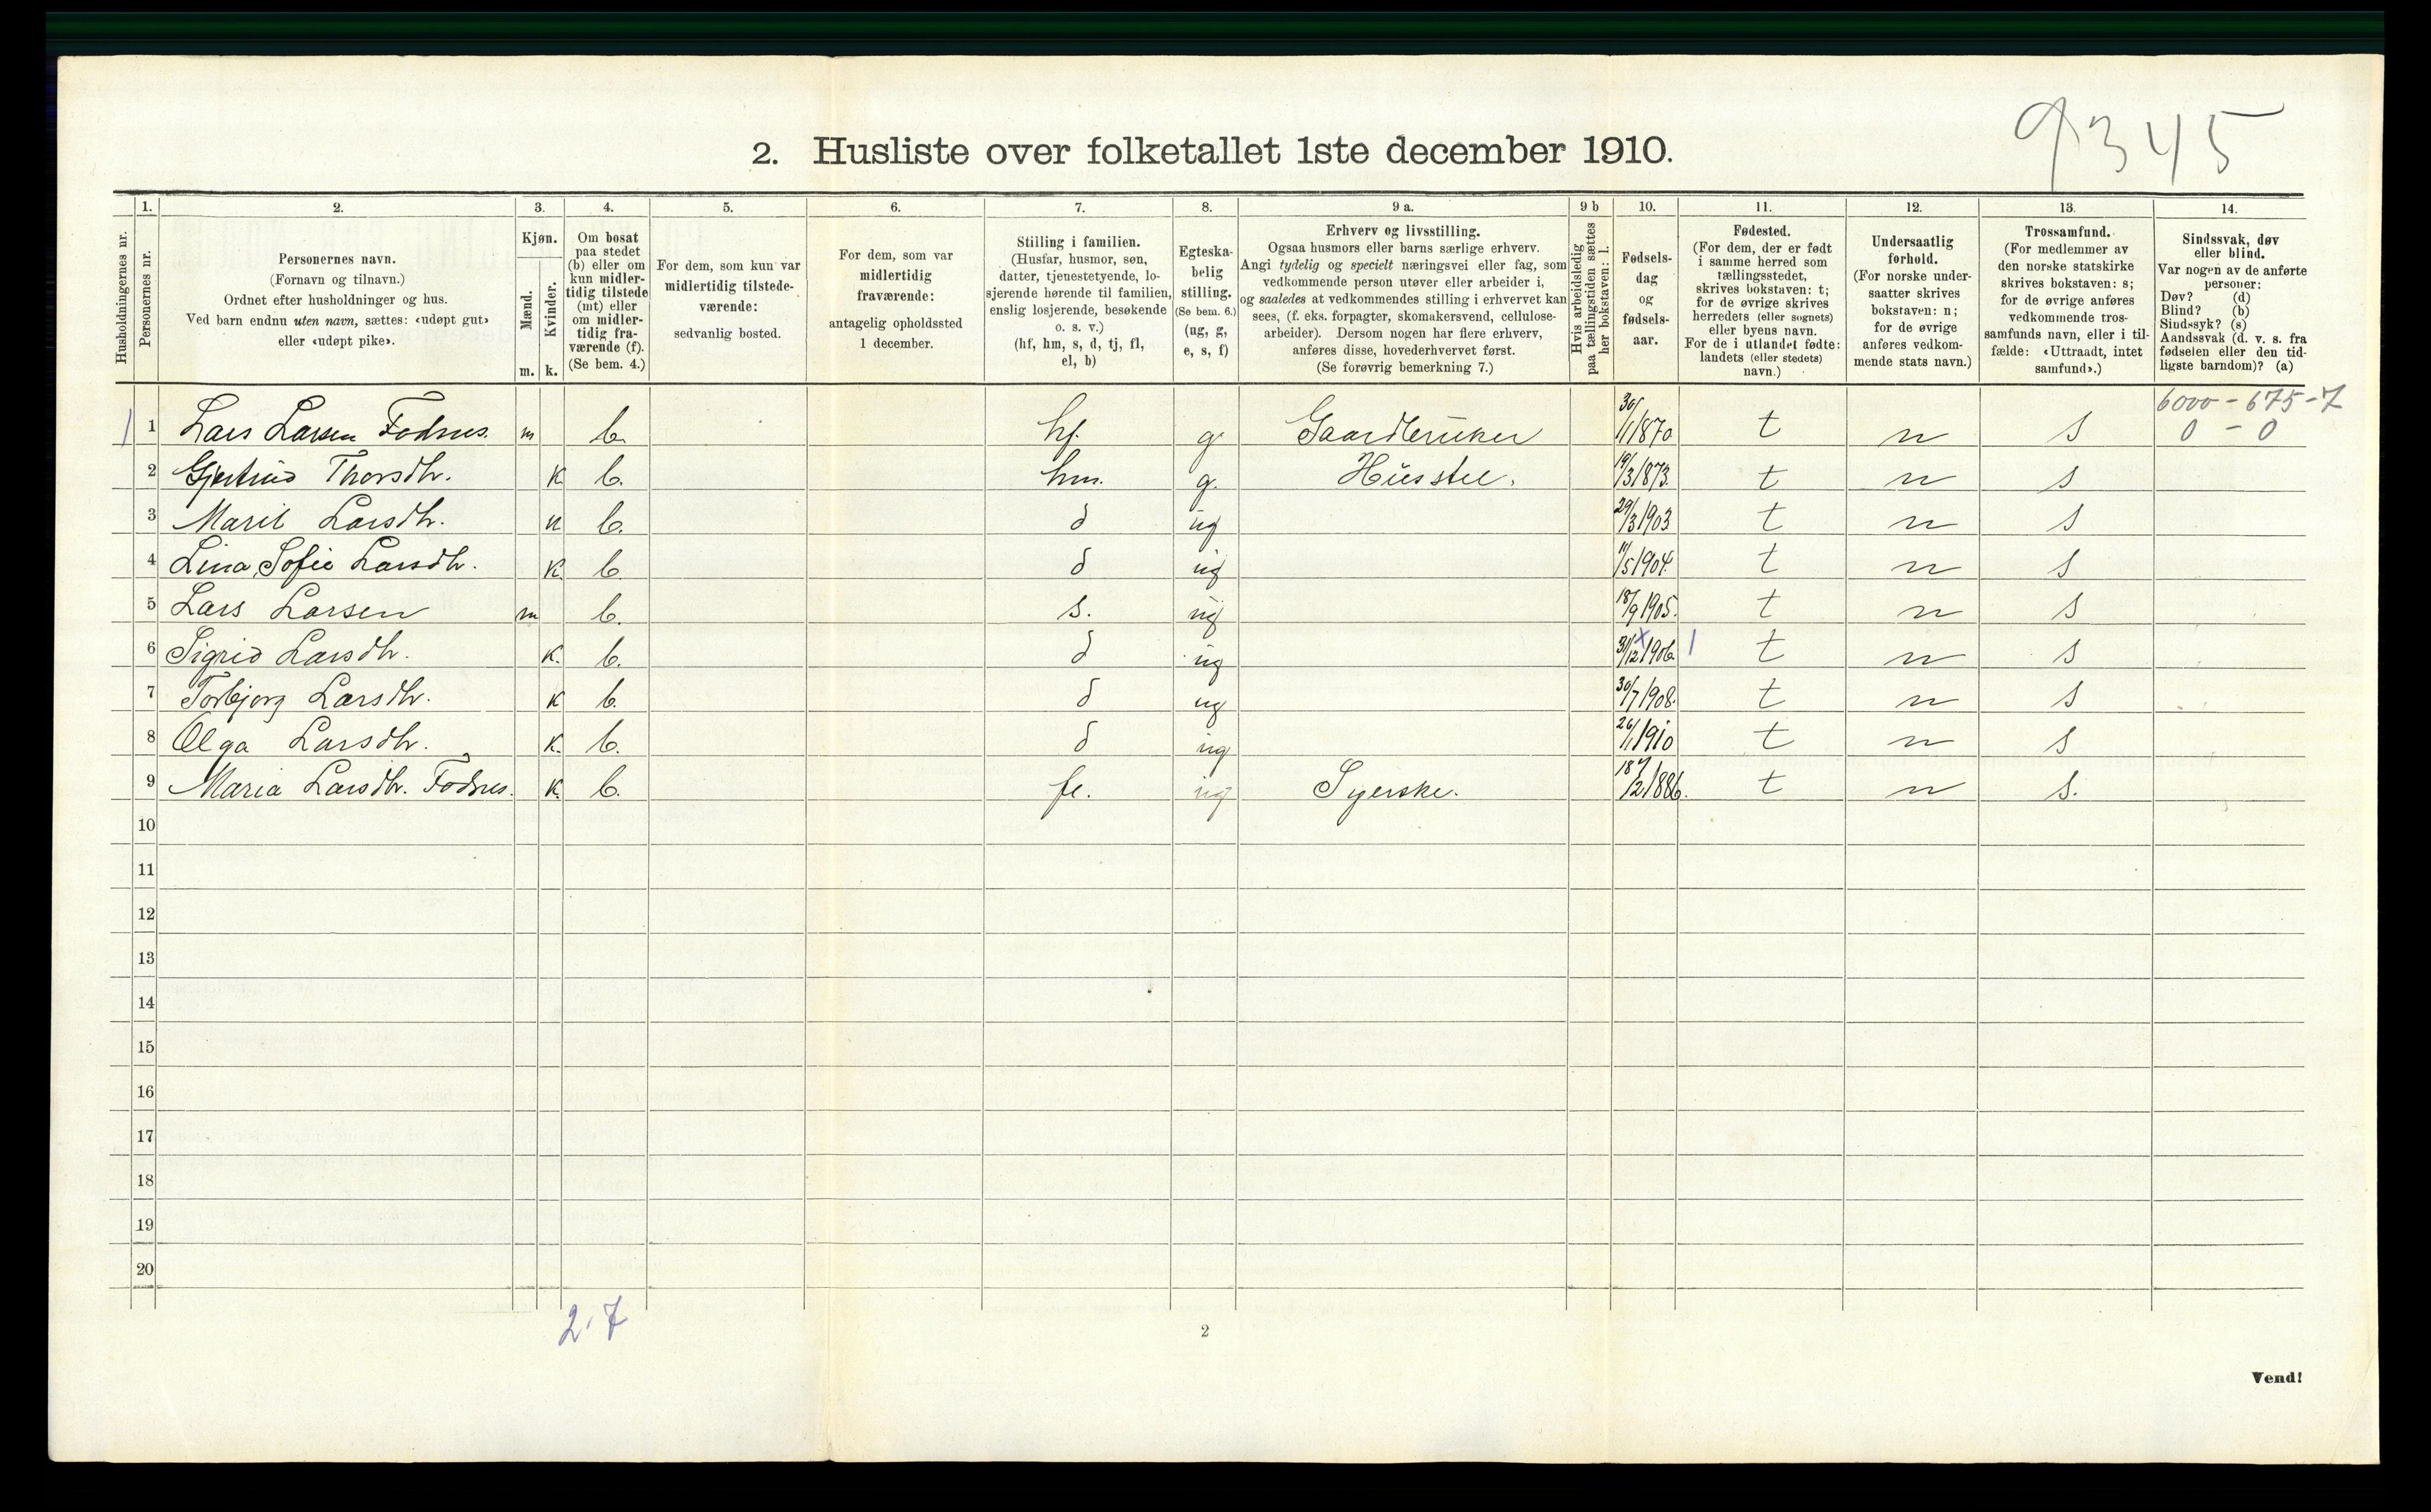 9345
2. Husliste over folketallet 1ste december 1910.
1. 2. 3. 4. 5. 6. 7. 8. 9 a. 9 b 10. 11. 12. 13. 14.
Husholdningernes nr.
Personernes nr.
Personernes navn.
(Fornavn og tilnavn.)
Ordnet efter husholdninger og hus.
Ved barn endnu uten navn, sættes: «udøpt gut»
eller «udøpt pike».
Kjøn.
Mænd.
Kvinder.
m. k.
Om bosat
paa stedet
(b) eller om
kun midler-
tidig tilstede
(mt) eller
om midler-
tidig fra-
værende (f).
(Se bem. 4.)
For dem, som kun var
midlertidig tilstede-
værende:
sedvanlig bosted.
For dem, som var
midlertidig
fraværende:
antagelig opholdssted
1 december.
Stilling i familien.
(Husfar, husmor, søn,
datter, tjenestetyende, lo-
sjerende hørende til familien,
enslig losjerende, besøkende
o. s. v.)
(hf, hm, s, d, tj, fl,
el, b)
Egteska-
belig
stilling.
(Se bem. 6.)
(ug, g,
e, s, f)
Erhverv og livsstilling.
Ogsaa husmors eller barns særlige erhverv.
Angi tydelig og specielt næringsvei eller fag, som
vedkommende person utøver eller arbeider i,
og saaledes at vedkommendes stilling i erhvervet kan
sees, (f. eks. forpagter, skomakersvend, cellulose-
arbeider). Dersom nogen har flere erhverv,
anføres disse, hovederhvervet først.
(Se forøvrig bemerkning 7.)
Hvis arbeidsledig
paa tællingstiden sættes
her bokstaven: l.
Fødsels-
dag
og
fødsels-
aar.
Fødested.
(For dem, der er født
i samme herred som
tællingsstedet,
skrives bokstaven: t;
for de øvrige skrives
herredets (eller sognets)
eller byens navn.
For de i utlandet fødte:
landets (eller stedets)
navn.)
Undersaatlig
forhold.
(For norske under-
saatter skrives
bokstaven: n;
for de øvrige
anføres vedkom-
mende stats navn.)
Trossamfund.
(For medlemmer av
den norske statskirke
skrives bokstaven: s;
for de øvrige anføres
vedkommende tros-
samfunds navn, eller i til-
fælde: «Uttraadt, intet
samfund».)
Sindssvak, døv
eller blind.
Var nogen av de anførte
personer:
Døv? (d)
Blind? (b)
Sindssyk? (s)
Aandssvak (d. v. s. fra
fødselen eller den tid-
ligste barndom)? (a)
6000 - 675 - 7
0 - 0
1 1 Lars Larsen Fodnes. m b. hf. g. Gaardbruker 30/1 1870 t n s
2 Gjertrud Thorsdtr. k b. hm. g. Husstel. 19/3 1873. t n s
3 Marit Larsdtr. k b. d ug 29/3 1903 t n s
4 Lina Sofie Larsdtr. k. b. d ug 11/5 1904. t n s
5 Lars Larsen m b. s. ug 18/9 1905. t n s
6 Sigrid Larsdtr. k. b. d ug 31/12 1906 t n s
7 Torbjorg Larsdtr. k b. d ug 30/7 1908. t n s
8 Olga Larsdtr. k. b. d ug 26/1 1910 t n s
9 Maria Larsdtr. Fodnes. k. b. fl. ug Syerske. 18/12 1886. t n s.
10
11
12
13
14
15
16
17
18
19
20
2. 7
2
Vend!